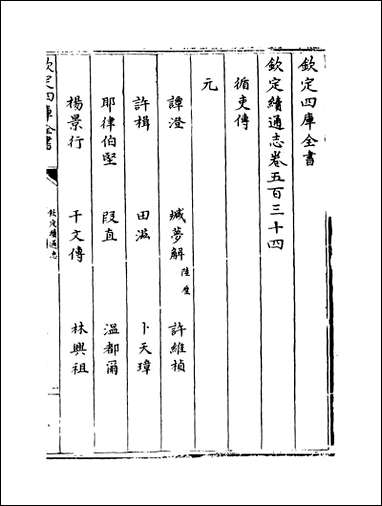 欽定四庫全書
欽定續通志卷五百三十四
循吏傳
元
譚澄 緘夢解 陸垕 許維禎
許楫 田滋 卜天璋
耶律伯堅 段直 溫都爾
楊景行 干文傳 林興祖
欽定四庫全書 欽定續通志